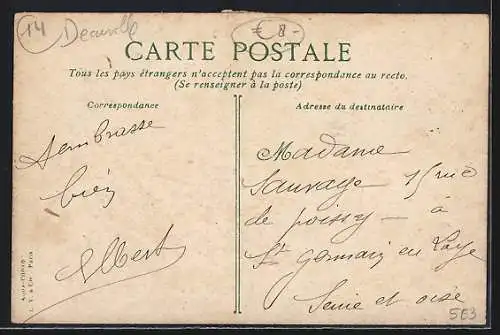 14 Deauville
€ 8-
CARTE POSTALE
Tous les pays étrangers n'acceptent pas la correspondance au recto.
(Se renseigner à la poste)
Correspondance
Adresse du destinataire
bien
Albert
Madame
Sauvage 15 rue
de poissy - à
St germain en Laye
Seine et oise
563